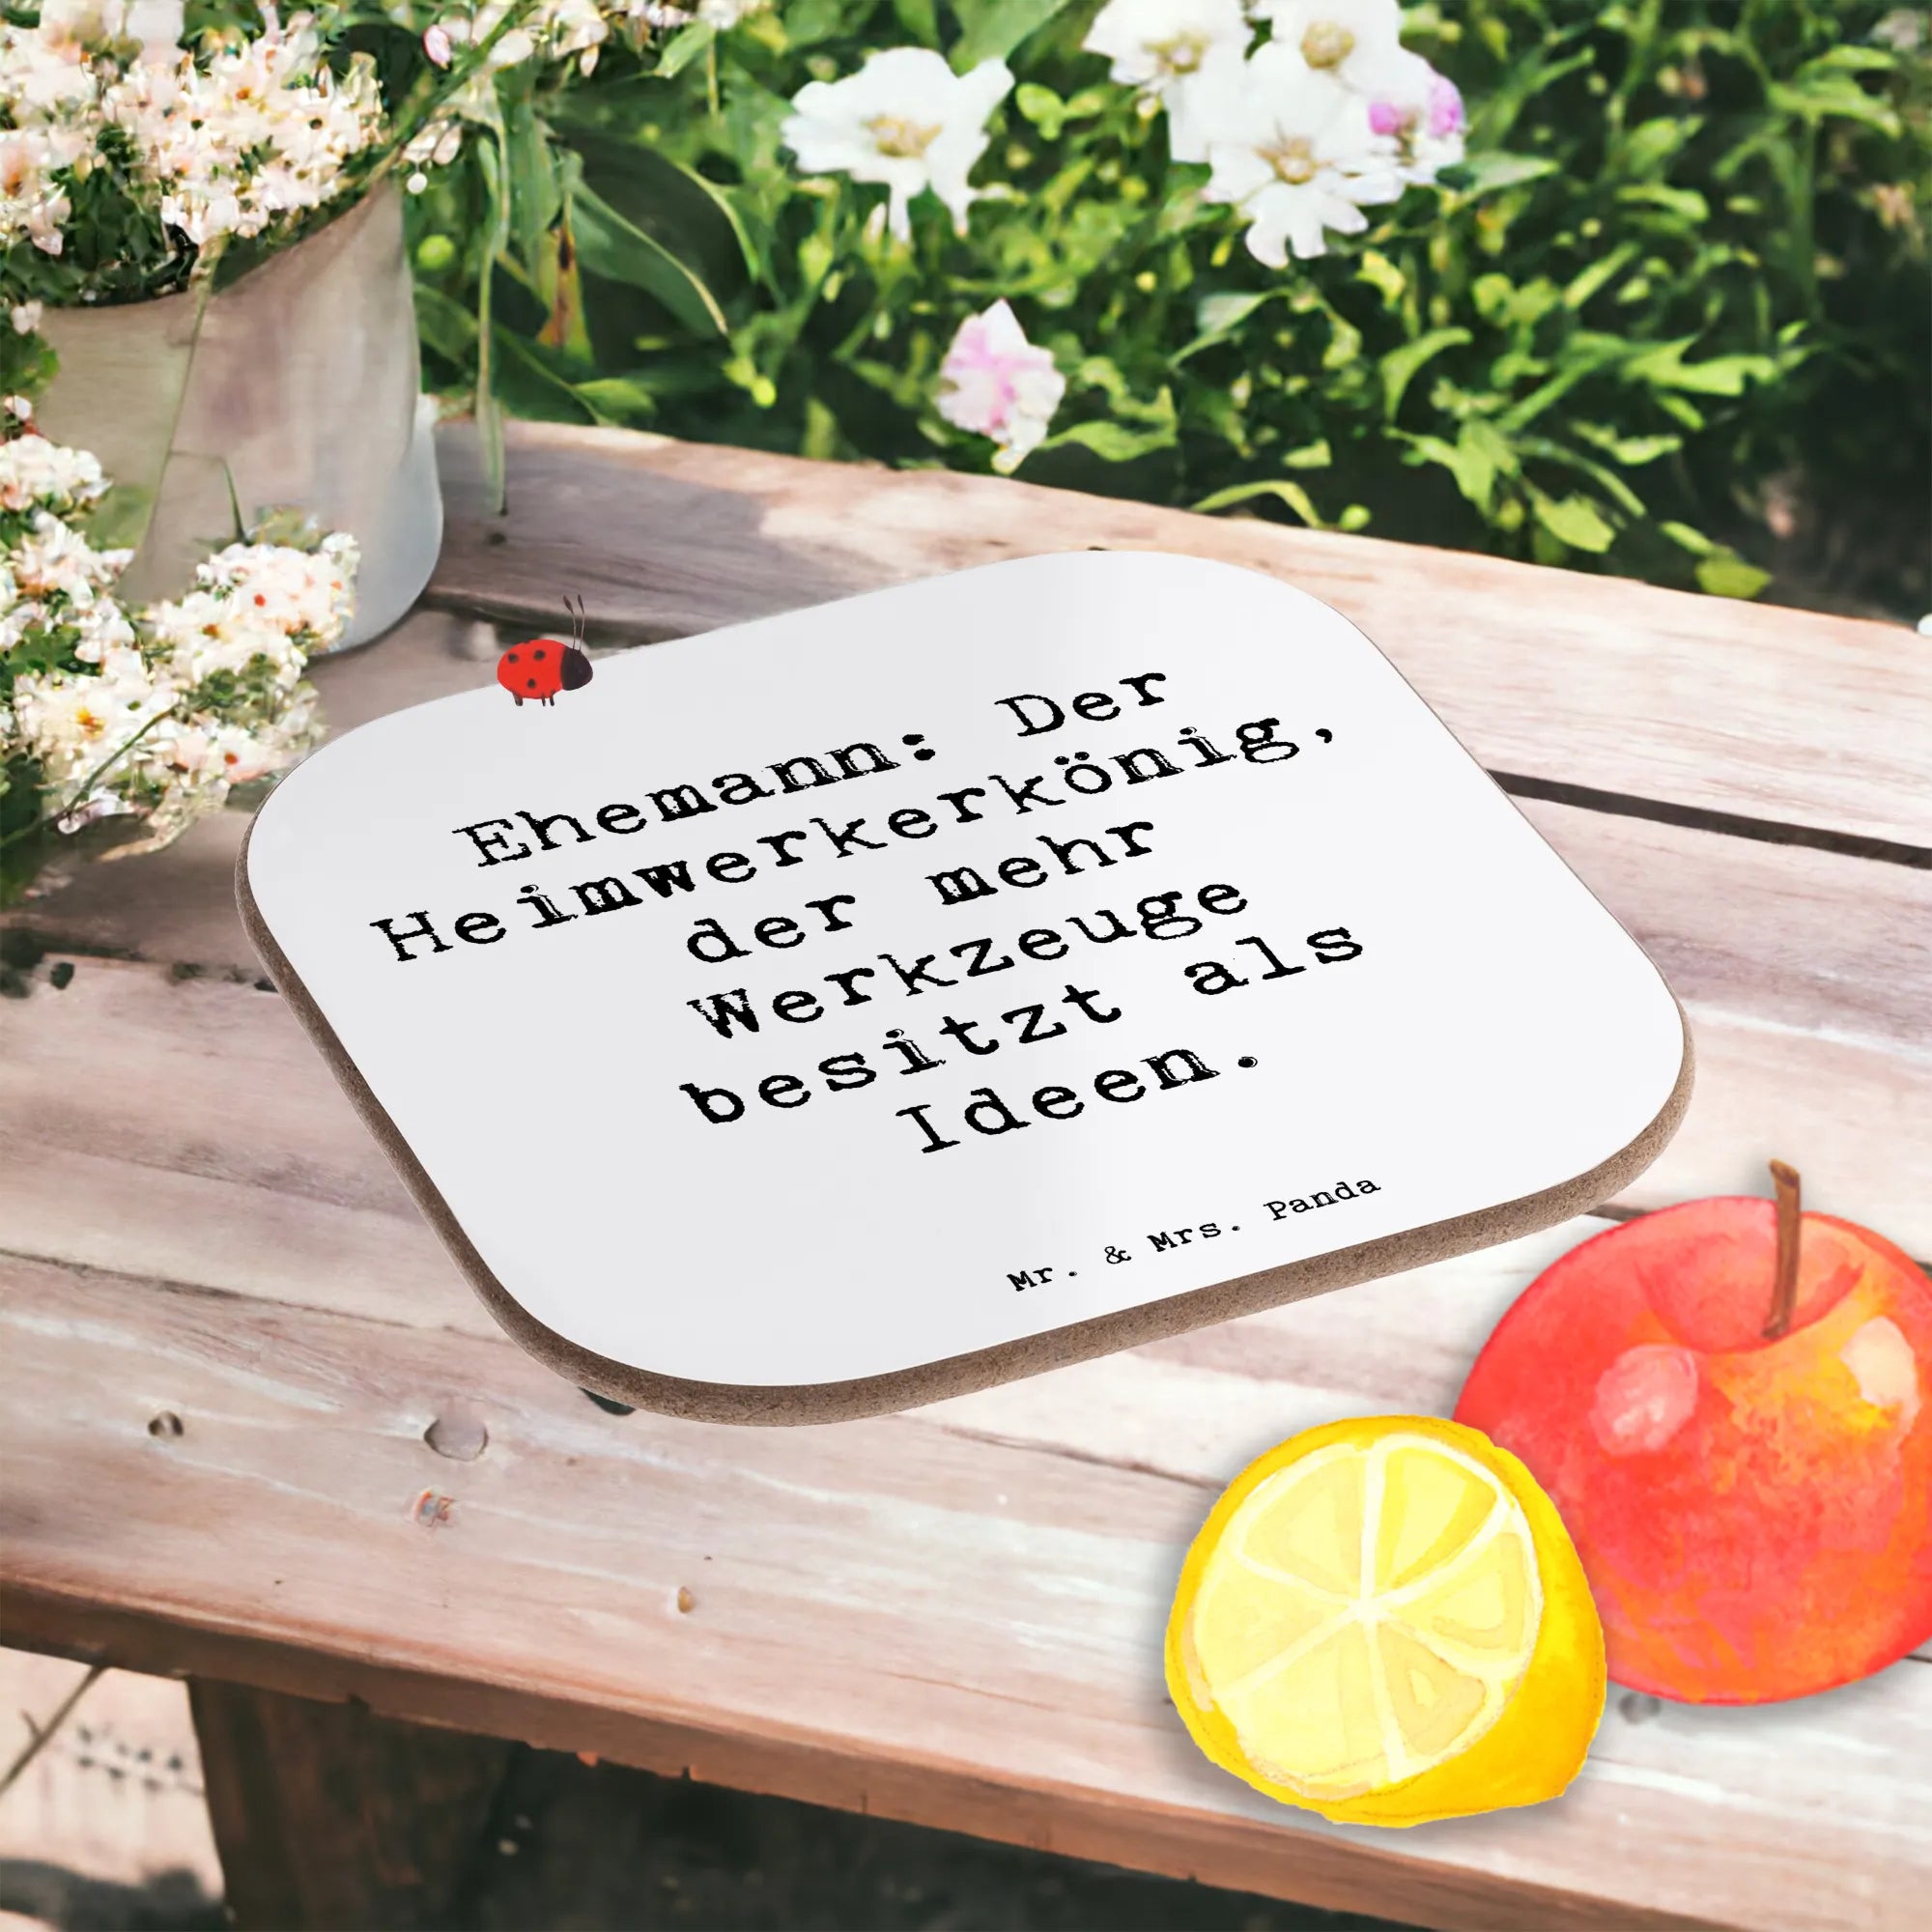 Ehemann: Der
Heimwerkerkönig,
der mehr
Werkzeuge
besitzt als
Ideen.
Mr. & Mrs. Panda